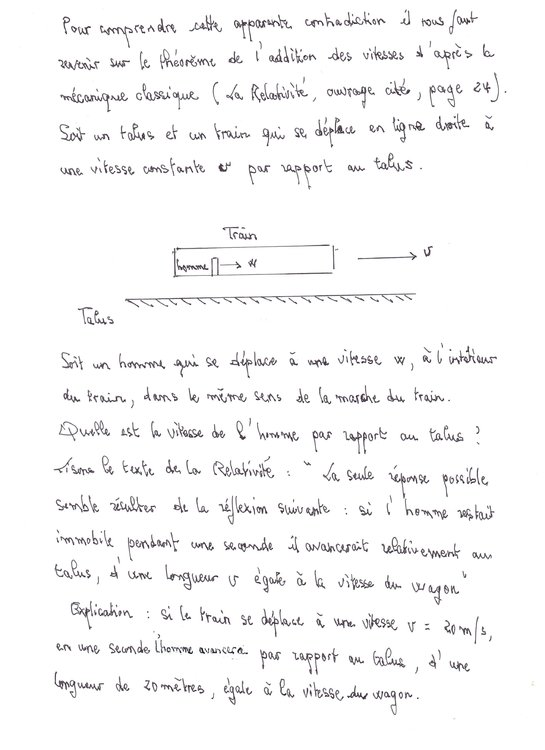 Pour comprendre cette apparente contradiction il nous faut
revenir sur le théorème de l'addition des vitesses d'après la
mécanique classique (La Relativité, ouvrage cité, page 24).
Soit un talus et un train qui se déplace en ligne droite à
une vitesse constante v par rapport au talus.
Train
homme w v
Talus
Soit un homme qui se déplace à une vitesse w, à l'intérieur
du train, dans le même sens de la marche du train.
Quelle est la vitesse de l'homme par rapport au talus ?
Lisons le texte de la Relativité : " La seule réponse possible
semble résulter de la réflexion suivante : si l'homme restait
immobile pendant une seconde il avancerait relativement au
talus, d'une longueur v égale à la vitesse du wagon"
Explication : si le train se déplace à une vitesse v = 20 m/s,
en une seconde l'homme avancera par rapport au talus, d'une
longueur de 20 mètres, égale à la vitesse du wagon.